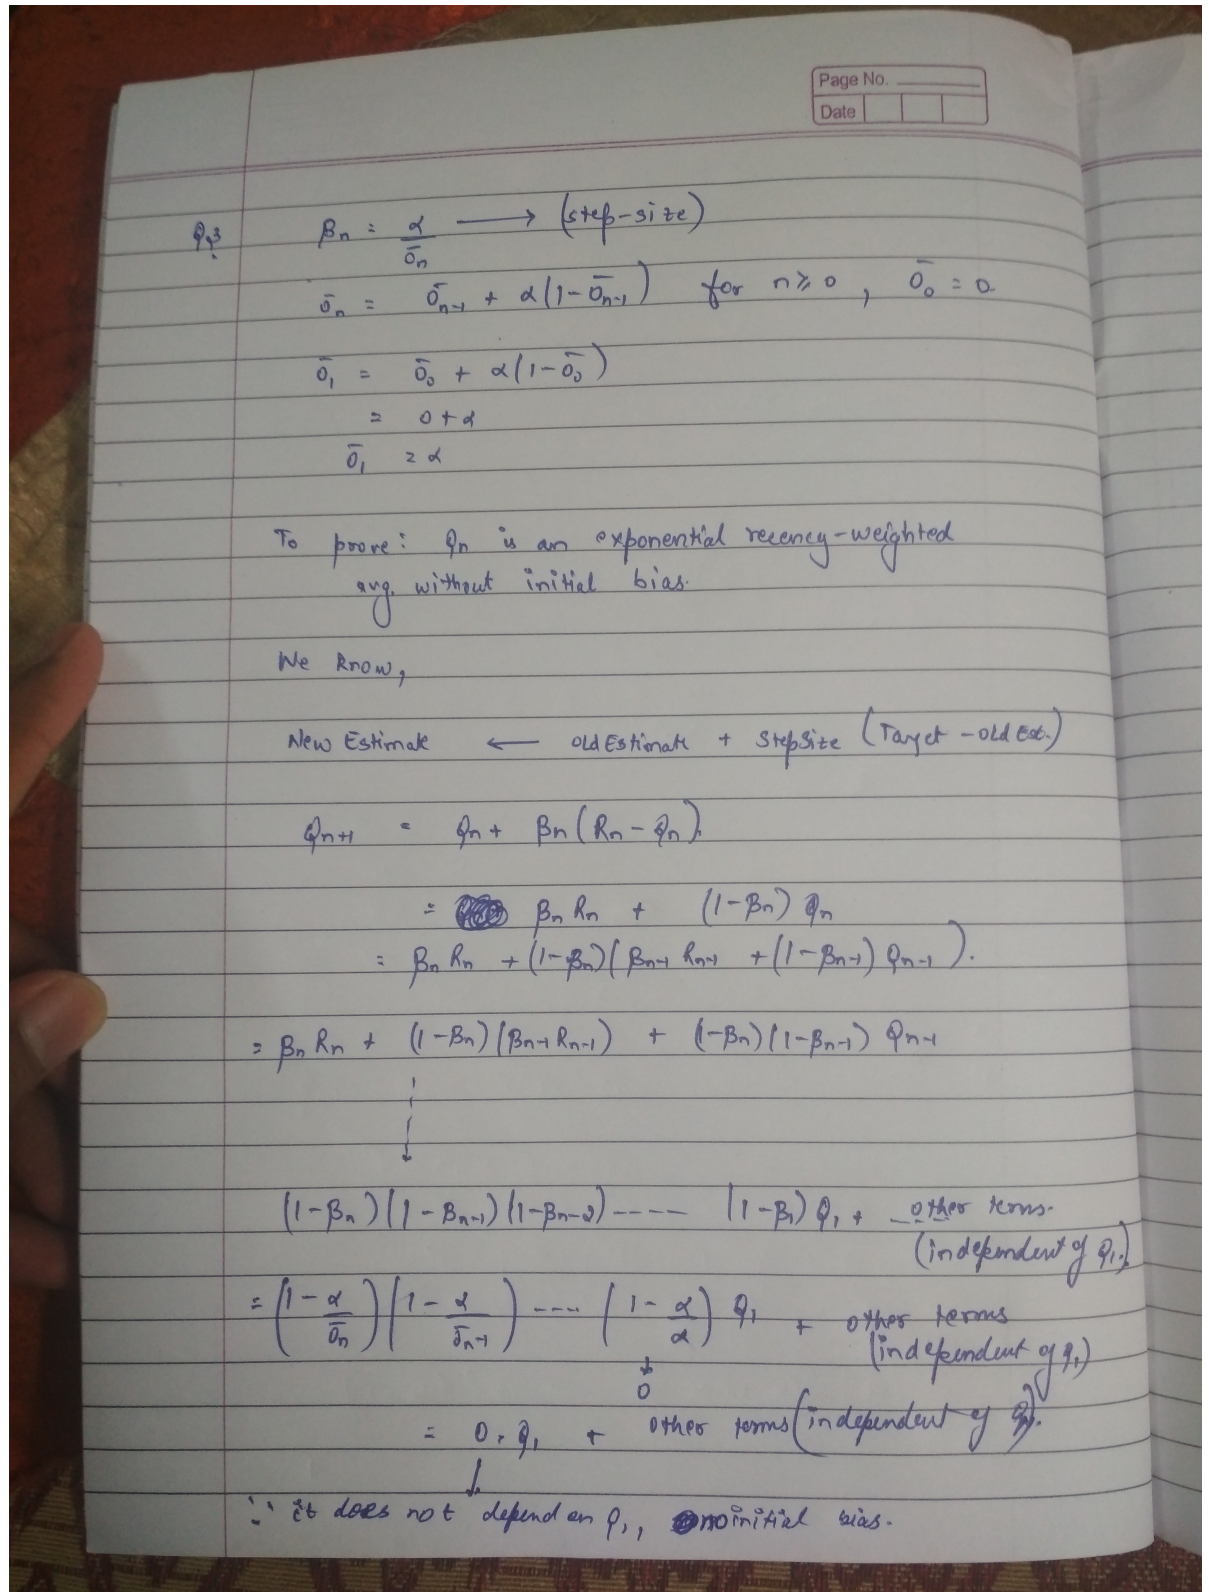 Page No.
Date
Q.3 βn = α/ōn → (step-size)
ōn = ōn-1 + α(1-ōn-1) for n≥0, ō0 = 0.
ō1 = ō0 + α(1-ō0)
= 0+α
ō1 = α
To prove: Qn is an exponential recency-weighted
avg. without initial bias.
We know,
New Estimate ← old Estimate + StepSize (Target - old Est.)
Qn+1 = Qn + βn(Rn - Qn).
= βn Rn + (1-βn) Qn
= βn Rn + (1-βn)(βn-1 Rn-1 + (1-βn-1) Qn-1).
= βn Rn + (1-βn)(βn-1 Rn-1) + (1-βn)(1-βn-1) Qn-1
(1-βn)(1-βn-1)(1-βn-2) ---- (1-β1) Q1 + other terms.
(independent of Q1.)
= (1-α/ōn)(1-α/ōn-1) ---- (1-α/α) Q1 + other terms
(independent of Q1)
↓
0
= 0. Q1 + other terms (independent of Q1).
↓
∵ it does not depend on Q1, no initial bias.